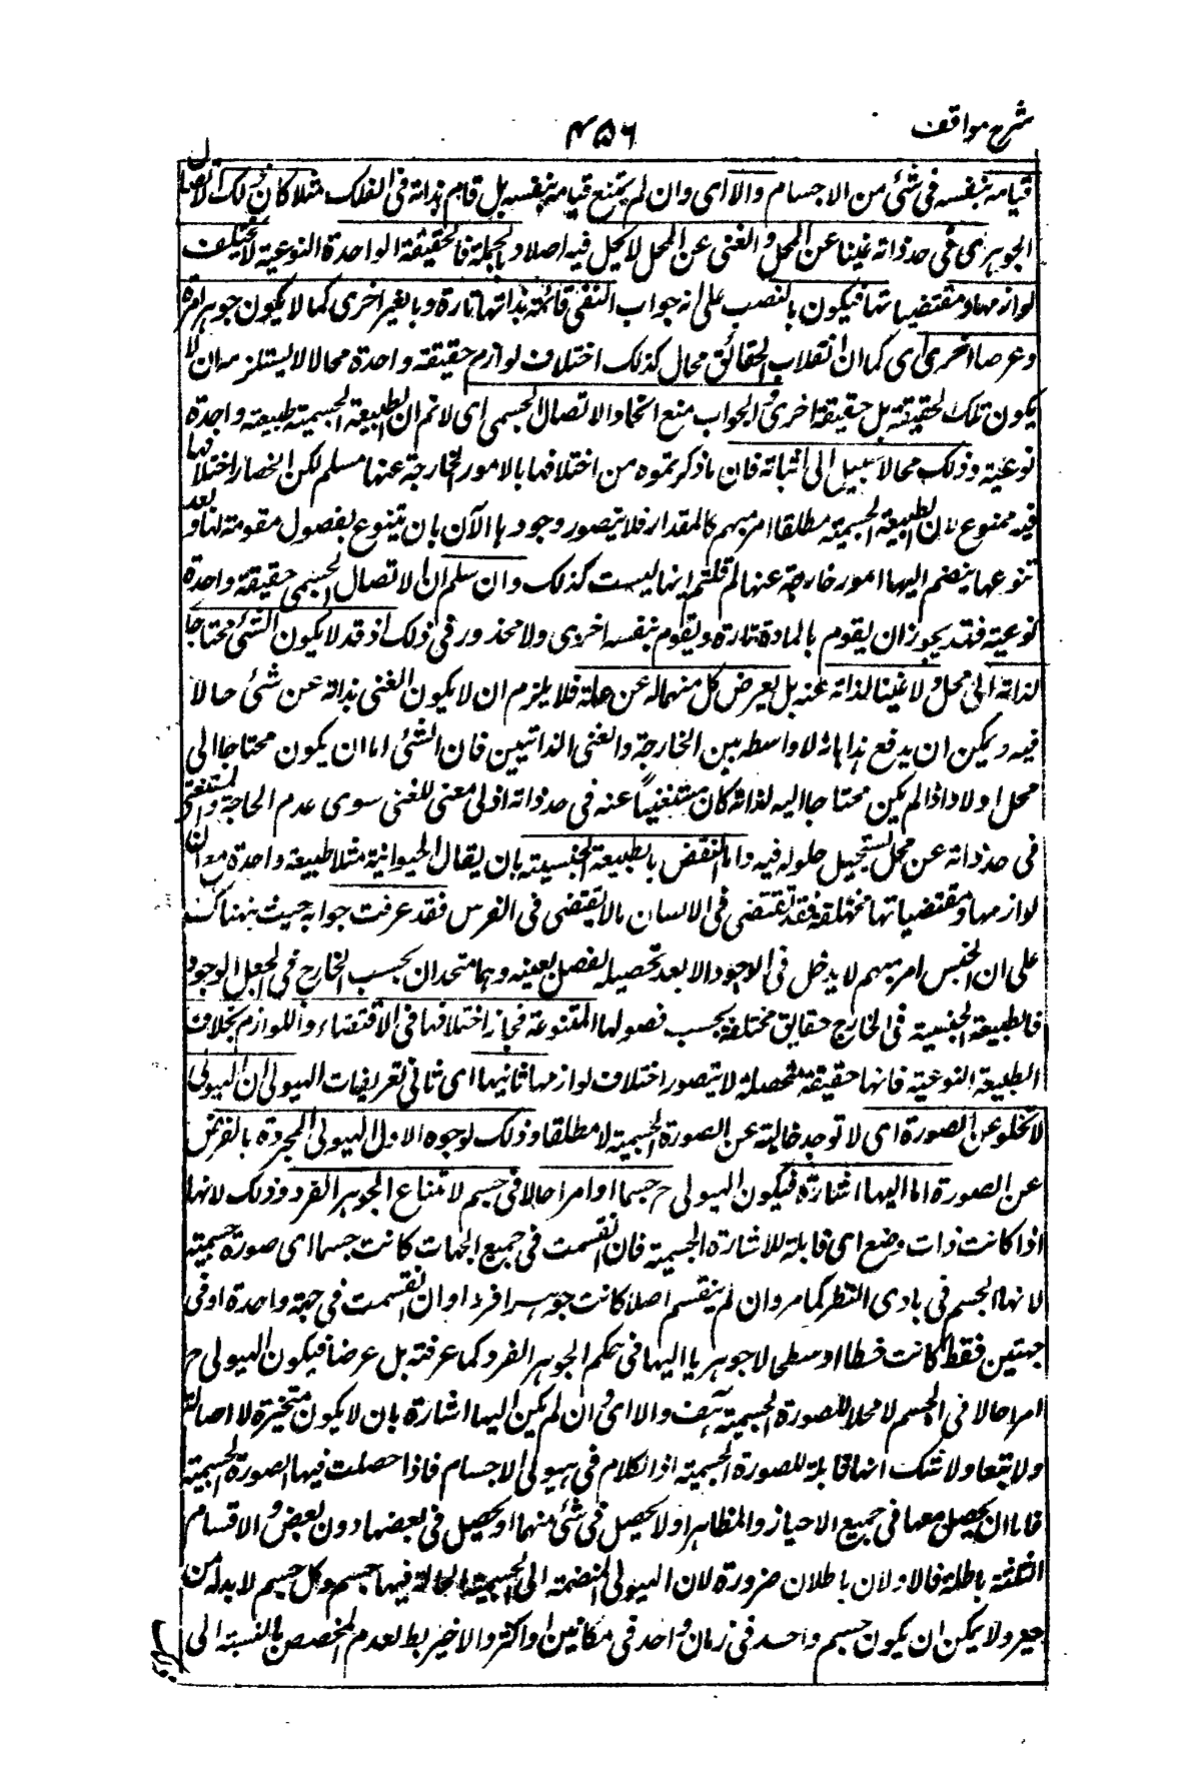 شرح مواقف
۴۵۶
قيامه بنفسه فى شئ من الاجسام والا اى وان لم يمتنع قيامه بنفسه بل قام بذاته فى الفلك مثلا كان ذلك الاتصال
الجوهرى فى حد ذاته غنيا عن المحل والغنى عن المحل لا يحل فيه اصلا وبالجملة فالحقيقة الواحدة النوعية لا تختلف
لوازمها ومقتضياتها فيكون بالنصب على انه جواب النفى قائمة بذاتها تارة وبالغير اخرى كما لا يكون جوهرا مرة
وعرضا اخرى اى كما ان انقلاب الحقائق محال كذلك اختلاف لوازم حقيقة واحدة محال لاستلزامه ان لا
يكون تلك الحقيقة بل حقيقة اخرى والجواب منع اتحاد الاتصال الجسمى اى لا نم ان الطبيعة الجسمية طبيعة واحدة
نوعية وذلك مما لا سبيل الى اثباته فان ما ذكرتموه من اختلافها بالامور الخارجة عنها مسلم لكن انحصار اختلافها
فيه ممنوع لان الطبيعة الجسمية مطلقا امر مبهم كالمقدار فلا يتصور وجودها الا بان يتنوع بفصول مقومة لها وبعد
تنوعها ينضم اليها امور خارجة عنها لم قلتم انها ليست كذلك وان سلم ان الاتصال الجسمى حقيقة واحدة
نوعية فقد يجوز ان يقوم بالمادة تارة ويقوم بنفسه اخرى ولا محذور فى ذلك اذ قد لا يكون الشئ محتاجا
لذاته الى محل ولا غنيا لذاته عنه بل يعرض كل منهما له عن علة فلا يلزم ان لا يكون الغنى بذاته عن شئ حالا
فيه ويمكن ان يدفع هذا بانه لا واسطة بين الحاجة والغنى الذاتيين فان الشئ اما ان يكون محتاجا الى
محل اولا واذا لم يكن محتاجا اليه لذاته كان مستغنيا عنه فى حد ذاته اذ لا معنى للغنى سوى عدم الحاجة والمستغنى
فى حد ذاته عن محل يستحيل حلوله فيه واما النقض بالطبيعة الجنسية بان يقال الحيوانية مثلا طبيعة واحدة مع ان
لوازمها ومقتضياتها مختلفة فقد تقتضى فى الانسان ما لا يقتضى فى الفرس فقد عرفت جوابه حيث نبهناك
على ان الجنس امر مبهم لا يدخل فى الوجود الا بعد تحصيله لفصل بعينه وهما متحدان بحسب الخارج فى الجعل والوجود
فالطبيعة الجنسية فى الخارج حقايق مختلفة بحسب فصولها المتنوعة فجاز اختلافها فى الاقتضاء واللوازم بخلاف
الطبيعة النوعية فانها حقيقة متحصلة لا يتصور اختلاف لوازمها ثانيها اى ثانى تعريفات الهيولى ان الهيولى
لا تخلو عن الصورة اى لا توجد خالية عن الصورة الجسمية لا مطلقا وذلك لوجوه الاول الهيولى المجردة بالفرض
عن الصورة اما اليها اشارة فيكون الهيولى ح جسما او امرا حالا فى جسم لامتناع الجوهر الفرد وذلك لانها
اذا كانت ذات وضع اى قابلة للاشارة الجسمية فان انقسمت فى جميع الجهات كانت جسما اى صورة جسمية
لانها الجسم فى بادى النظر كما مر وان لم ينقسم اصلا كانت جوهرا فردا وان انقسمت فى جهة واحدة او فى
جهتين فقط كانت خطا او سطحا لا جوهريا اليها فى حكم الجوهر الفرد كما عرفته بل عرضا فيكون الهيولى ح
امرا حالا فى الجسم لا محلا للصورة الجسمية هف والا اى وان لم يكن اليها اشارة بان لا يكون متحيزة لا اصالة
ولا تبعا ولا شك انها قابلة للصورة الجسمية اذ الكلام فى هيولى الاجسام فاذا حصلت فيها الصورة الجسمية
فاما ان يحصل معها فى جميع الاحياز والمظاهر اولا يحصل فى شئ منها او يحصل فى بعضها دون بعض والاقسام
الثلثة باطلة فالاولان باطلان ضرورة لان الهيولى المنضمة الى الجسمية الحالة فيها جسم وكل جسم لا بد له من
حيز ولا يمكن ان يكون جسم واحد فى زمان واحد فى مكانين او اكثر والاخير بط لعدم المخصص بالنسبة الى